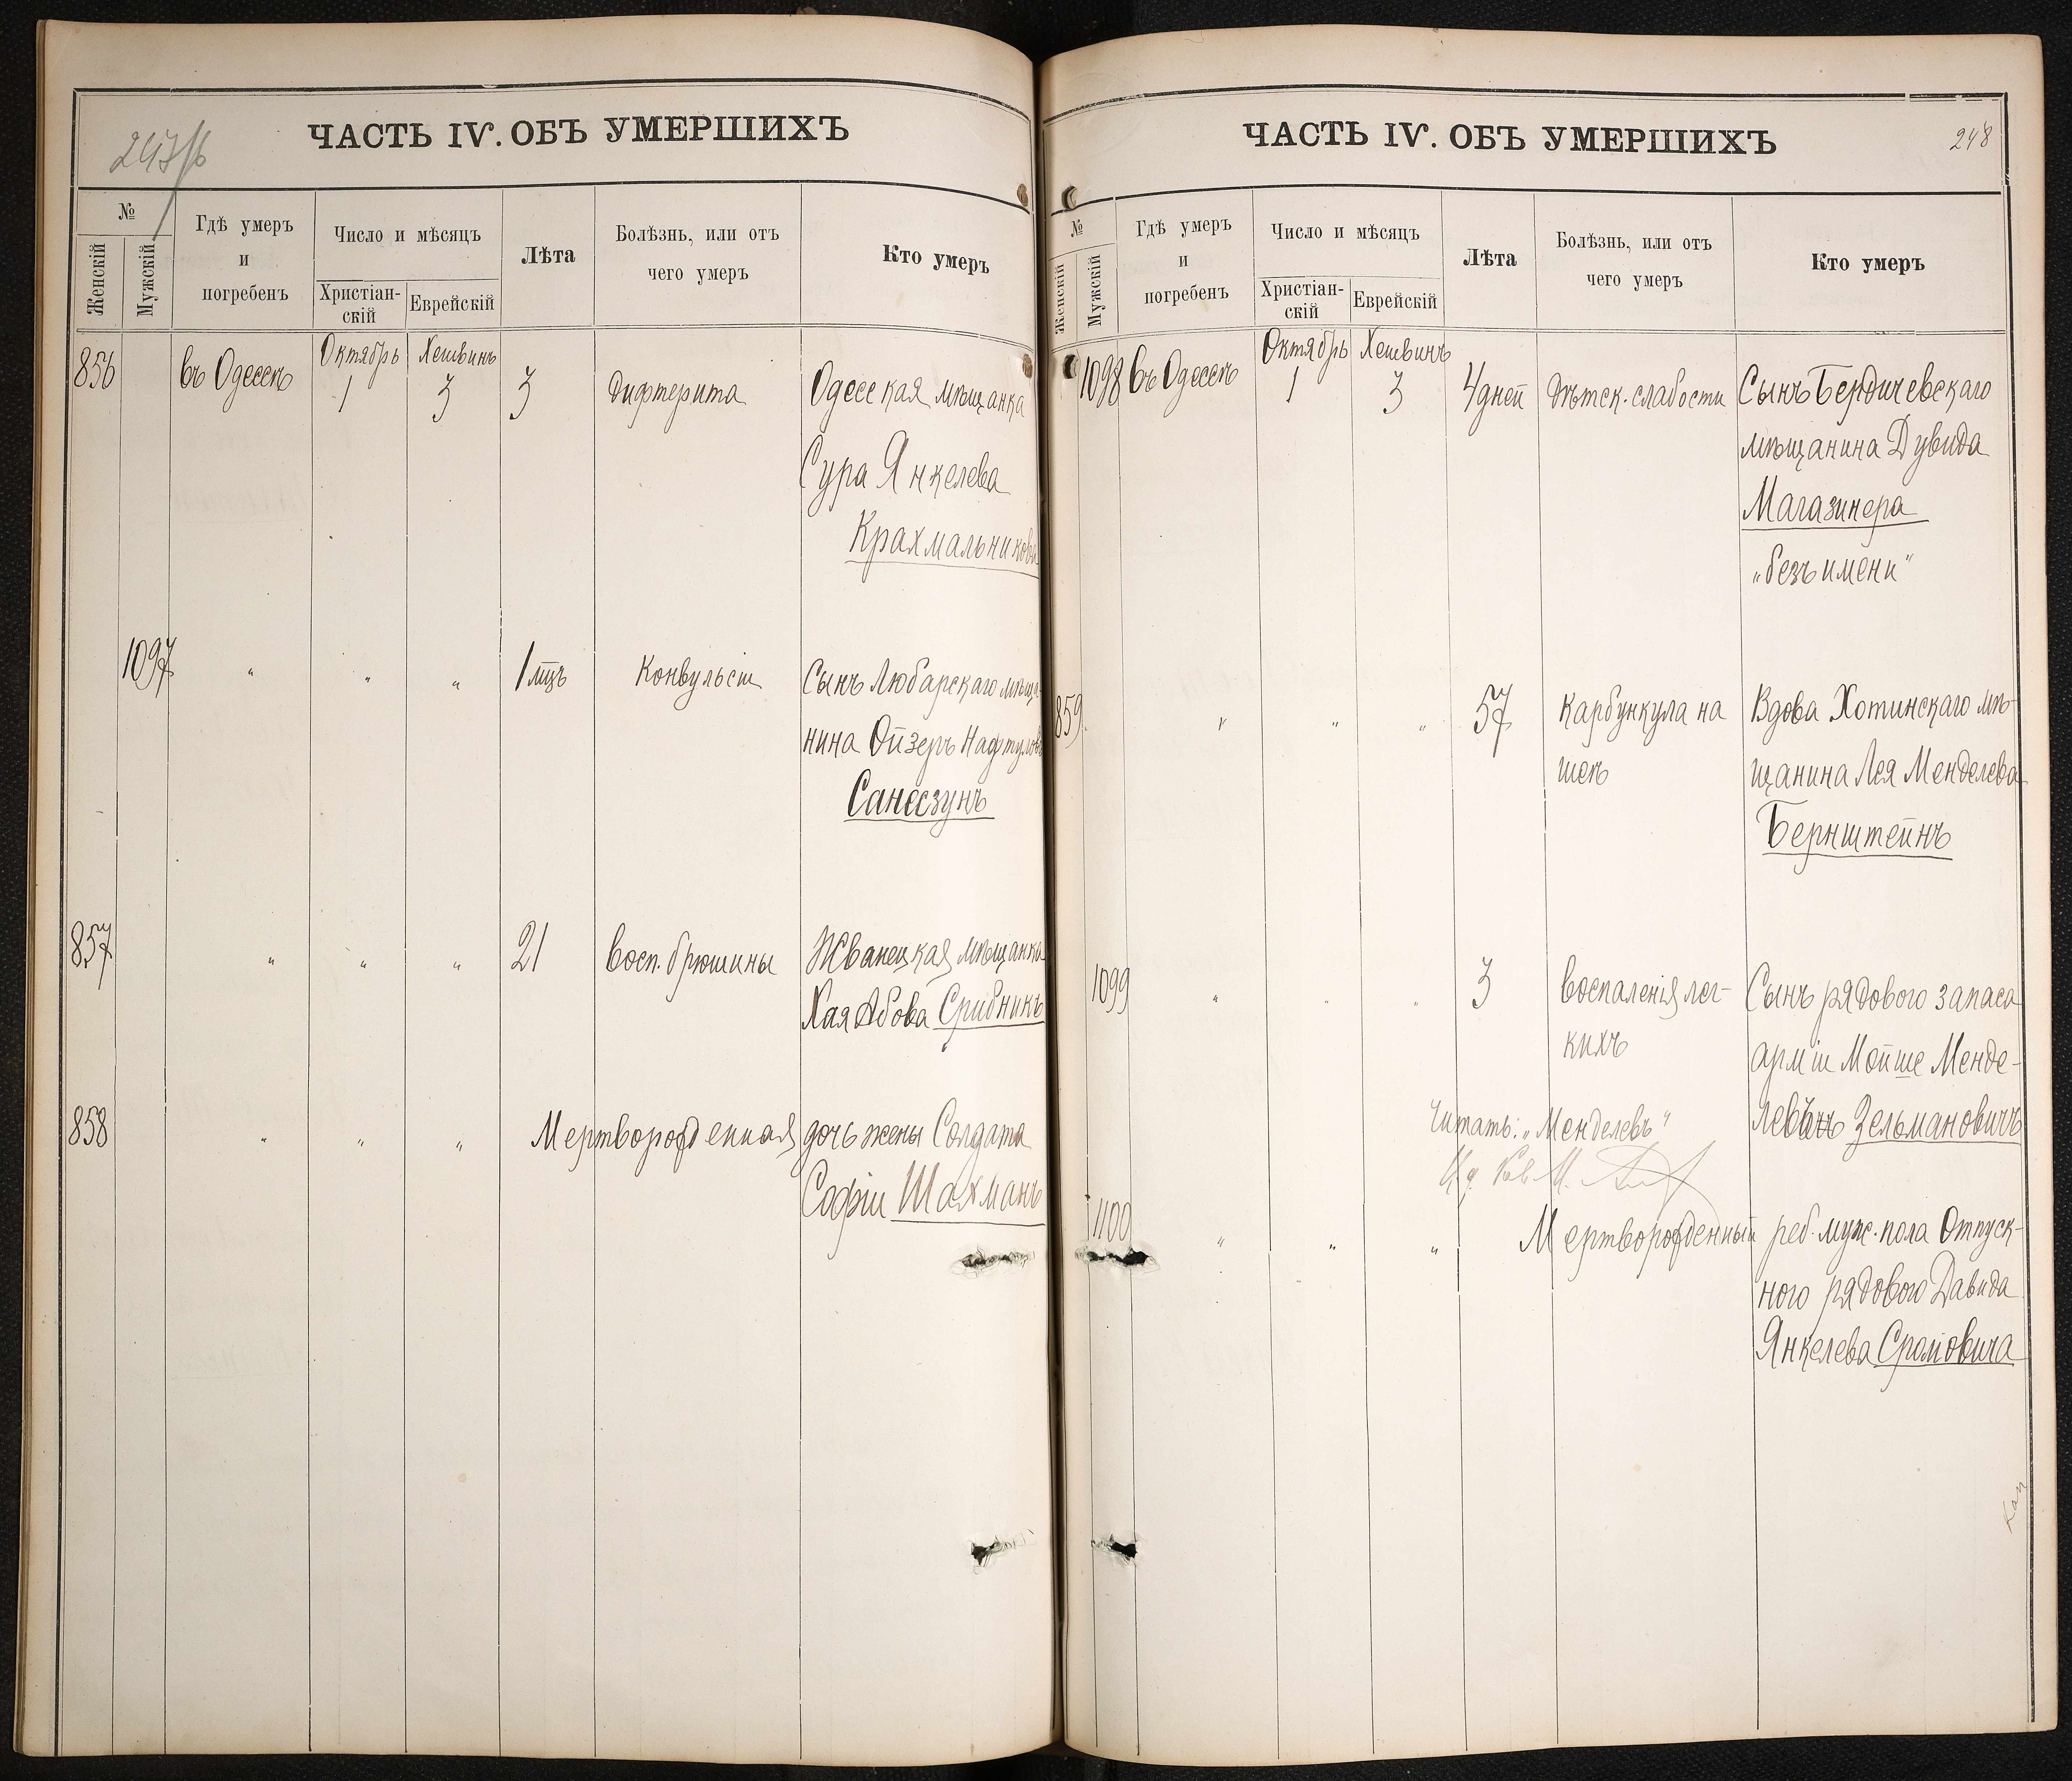 ЧАСТЬ IV. ОБЪ УМЕРШИХЪ
№
Женскій
Мужскій
Гдѣ умеръ
и
погребенъ
Число и мѣсяцъ
Христіан-
скій
Еврейскій
Лѣта
Болѣзнь, или отъ
чего умеръ
Кто умеръ
Октябрь Хешвинъ
856 въ Одессѣ 1 3 3 дифтерита Одесская мѣщанка
Сура Янкелева
Крахмальникова
1097 " " " 1 мць Конвульсіи Сынъ Любарскаго мѣща-
нина Ойзеръ Нафтуловъ
Санесзунъ
857 " " " 21 Восп. брюшины Жванецкая мѣщанка
Хая Абова Срибникъ
858 " " " Мертворожденная дочь жены Солдата
Софіи Шахманъ
ЧАСТЬ IV. ОБЪ УМЕРШИХЪ
248
№
Женскій
Мужскій
Гдѣ умеръ
и
погребенъ
Число и мѣсяцъ
Христіан-
скій
Еврейскій
Лѣта
Болѣзнь, или отъ
чего умеръ
Кто умеръ
Октябрь Хешвинъ
1098 въ Одессѣ 1 3 4 дней дѣтск. слабости Сынъ Бердичевскаго
мѣщанина Дувида
Магазинера
„безъ имени"
859 " " " 57 Карбункула на Вдова Хотинскаго мѣ-
шеѣ щанина Лея Менделева
Бернштейнъ
1099 " " " 3 воспаленія лег- Сынъ рядового запаса
кихъ арміи Мойше Менде-
Читать: „Менделевъ" Зельмановичъ
1100 " " " Мертворожденный реб. муж. пола Отпуск-
ного рядового Давида
Янкелева